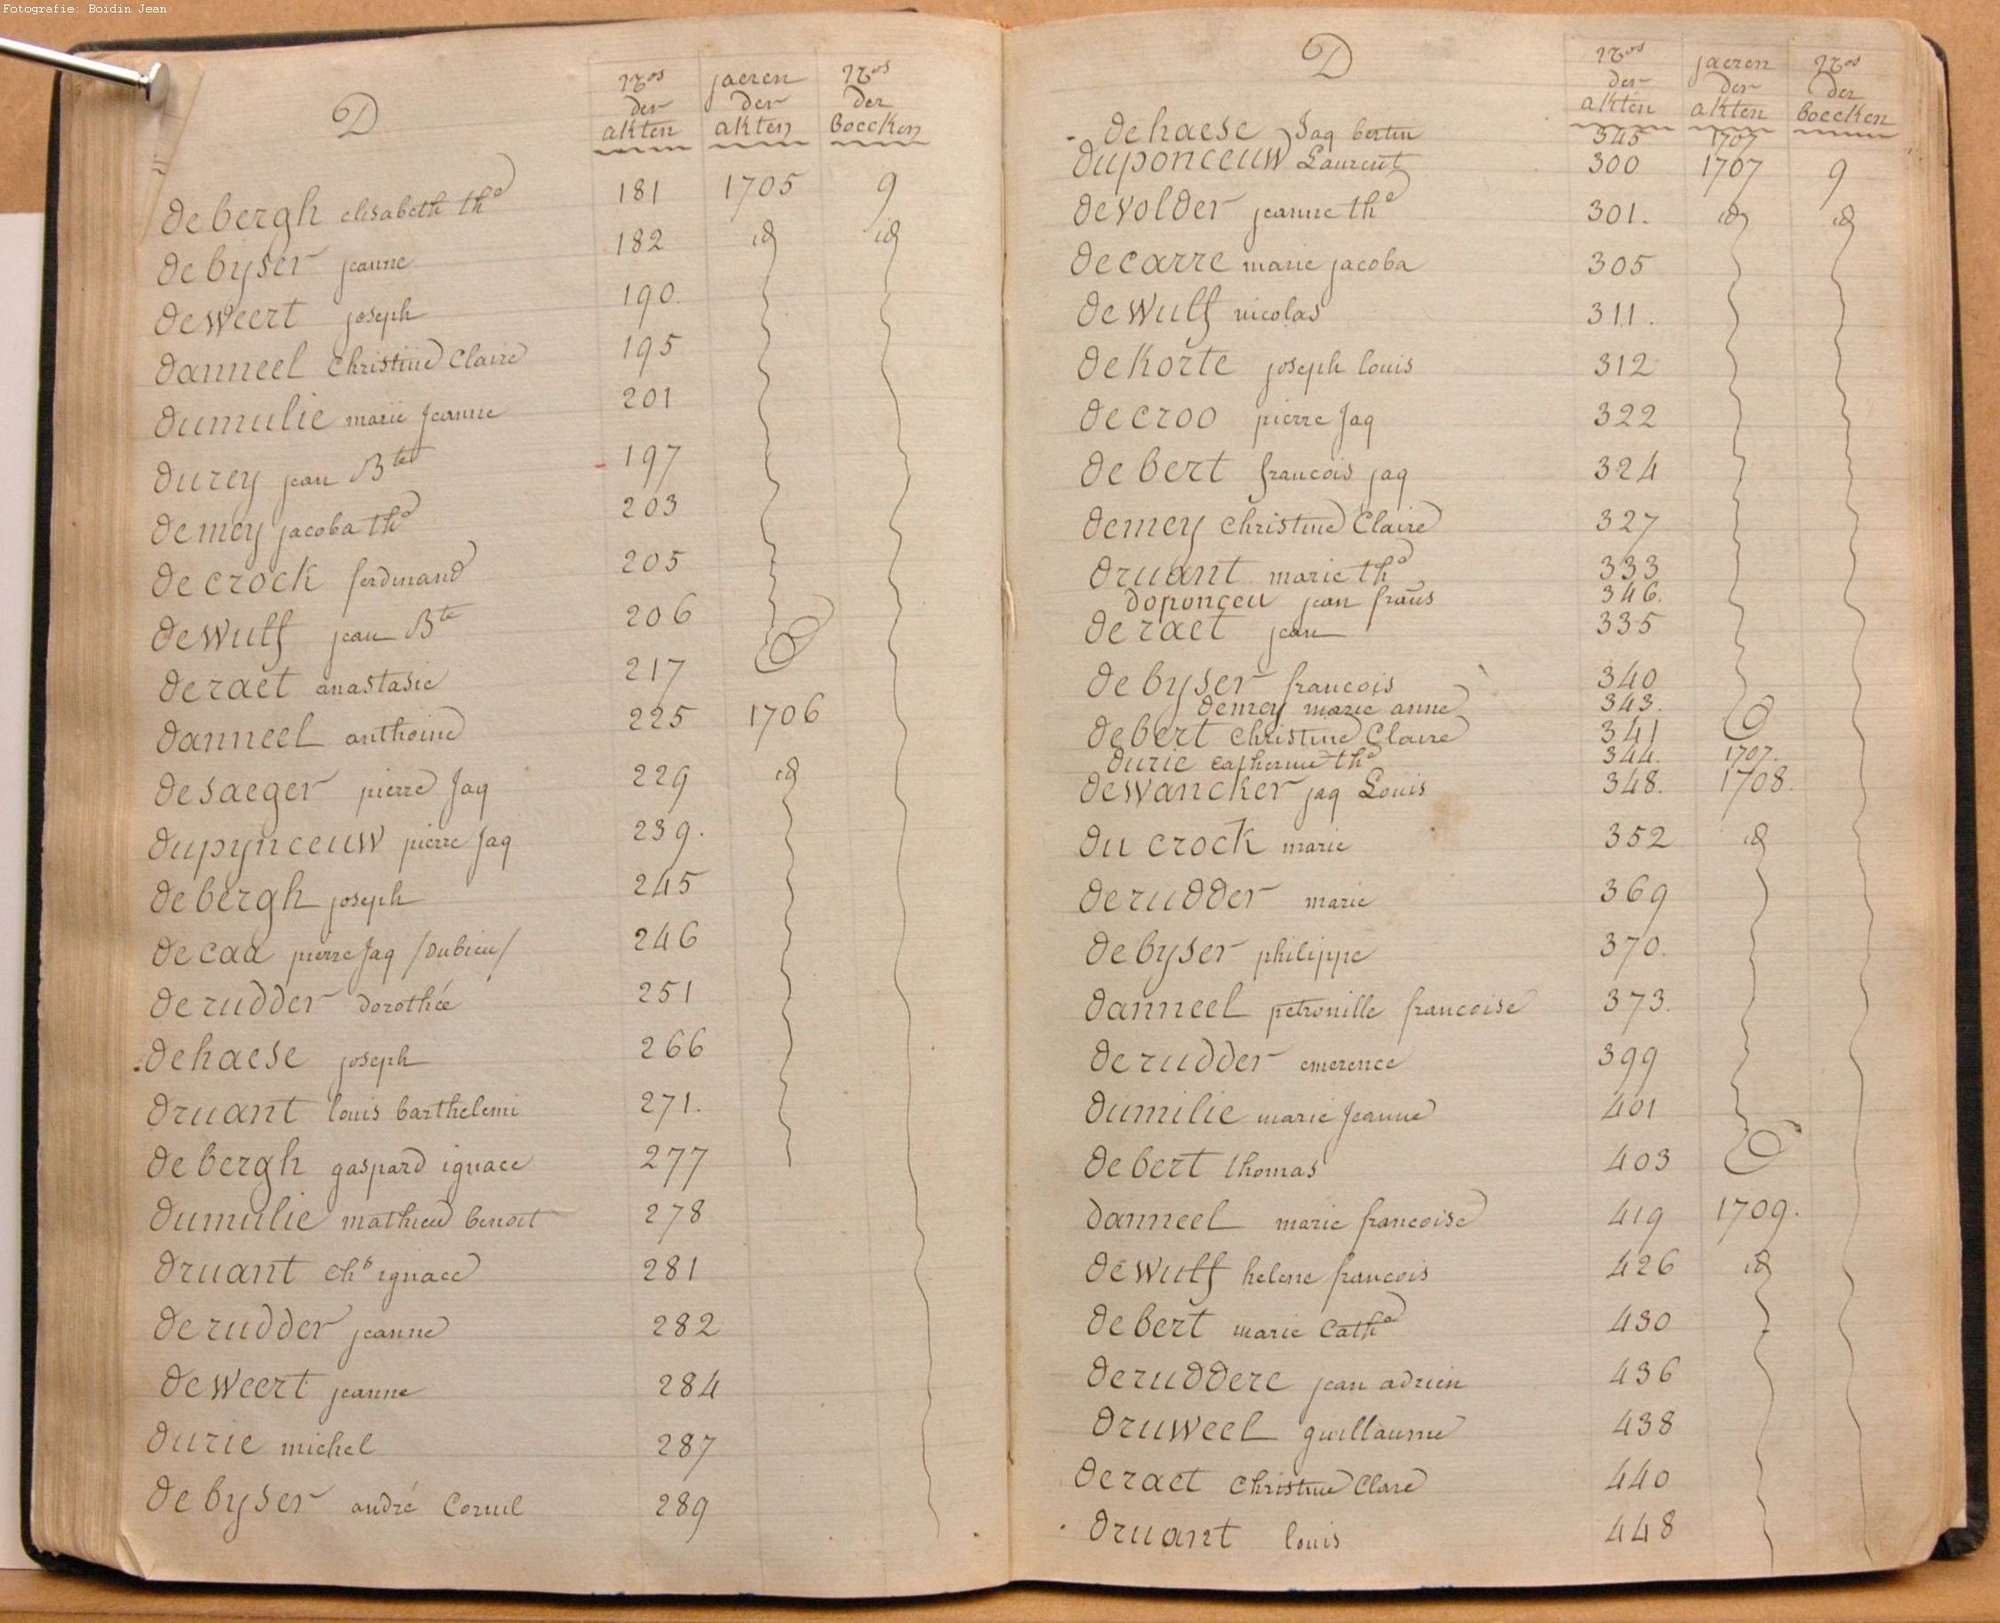 Fotografie: Boidin Jean
D
Nros der akten
jaeren der akten
Nros der boecken
debergh elisabeth the 181 1705 9
debyser jeanne 182 id id
deweert joseph 190.
danneel Christine Claire 195
dumulie marie jeanne 201
durey jean Bte 197
demey jacoba the 203
decrock ferdinand 205
dewulf jean Bte 206
deraet anastasie 217
danneel anthoine 225 1706
desaeger pierre Jaq 229 id
dupynceuw pierre Jaq 239.
debergh joseph 245
decaa pierre Jaq /dubieu/ 246
derudder dorothée 251
dehaese joseph 266
druant louis barthelemi 271.
debergh gaspard ignace 277
dumulie mathieu benoit 278
druant chs ignace 281
derudder jeanne 282
deweert jeanne 284
durie michel 287
debyser andré Cornil 289
D
Nros der akten
jaeren der akten
Nros der boecken
dehaese Jaq bertin 345 1707
duponceuw Laurent 300 1707 9
devolder jeanne the 301. id id
decarre marie jacoba 305
dewulf nicolas 311.
dekorte joseph louis 312
decroo pierre Jaq 322
debert francois jaq 324
demey Christine Claire 327
druant marie the 333
doponceu jean frans 346.
deraet jean 335
debyser francois 340
demey marie anne 343.
debert Christine Claire 341
durie catherine the 344. 1707.
dewancker jaq Louis 348. 1708.
du crock marie 352 id
derudder marie 369
debyser philippe 370.
danneel petronille francoise 373.
derudder emerence 399
dumilie marie Jeanne 401
debert thomas 403
danneel marie francoise 419 1709.
dewulf helene francois 426 id
debert marie Cathe 430
deruddere jean adrien 436
druweel guillaume 438
deraet Christine Clare 440
druant louis 448